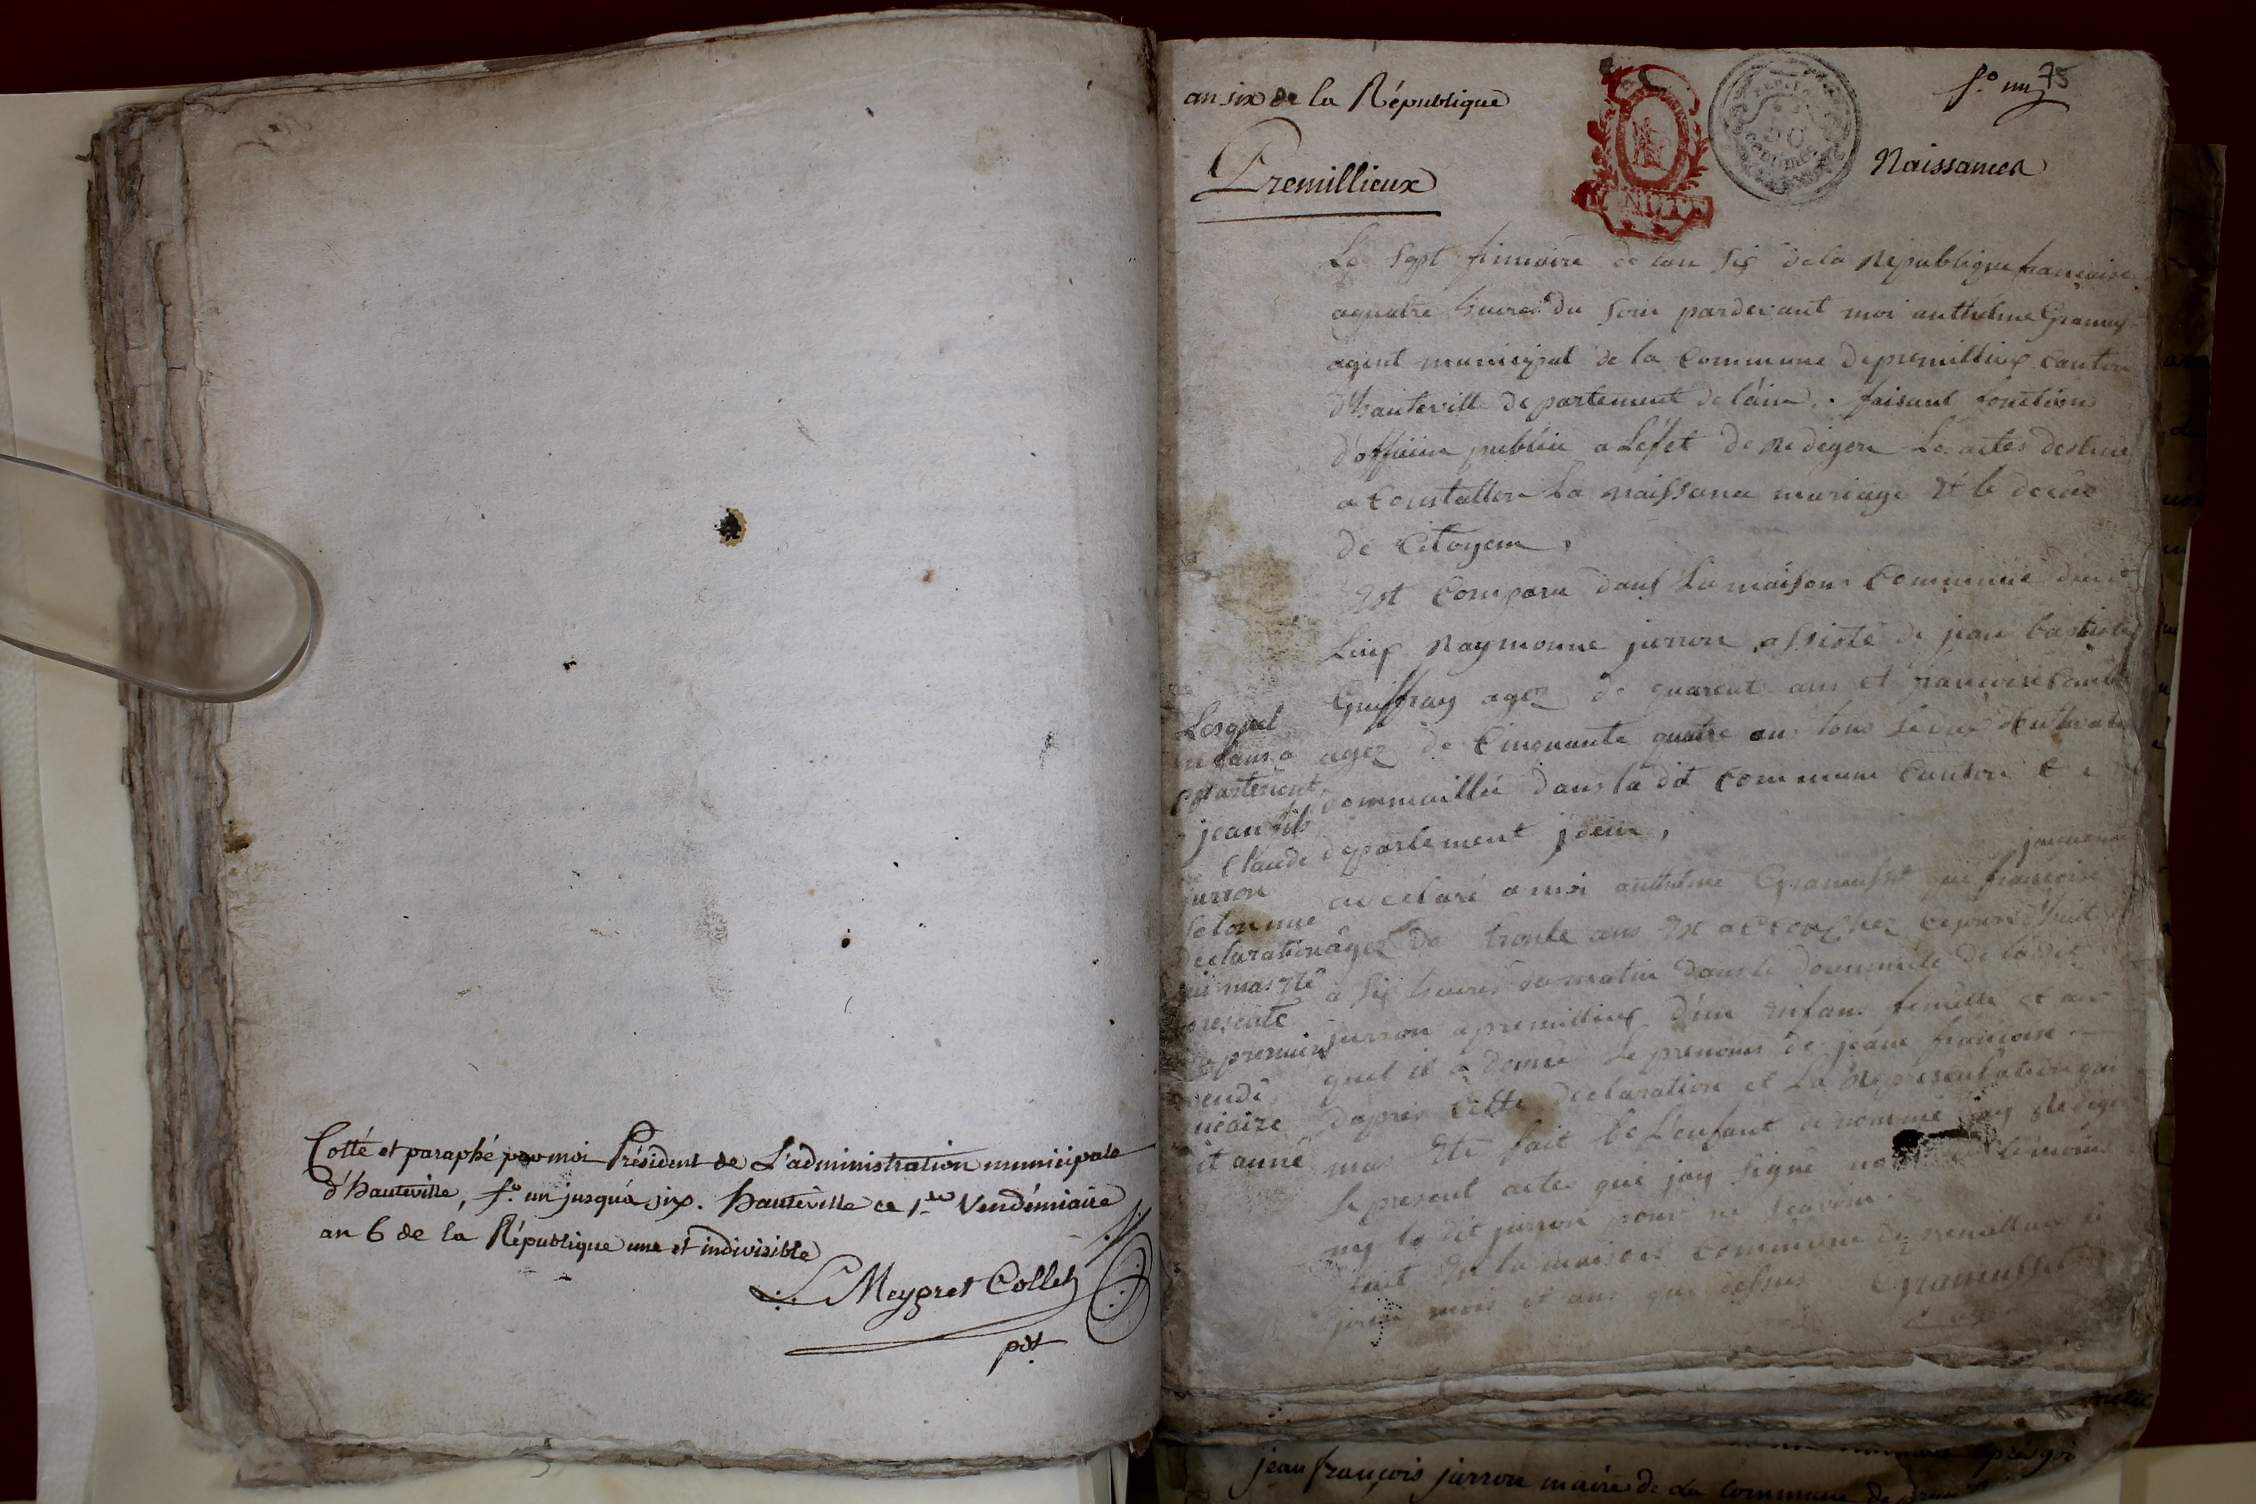 Cotté et paraphé par moi Président de L'administration municipale
d'hauteville, f.o un jusqu'a six. hauteville ce 1.er Vendémiaire
an 6 de la République une et indivisible
L Meygret Collet
pdt
an six de la République
f.o un 75
Premillieux
Naissances
Le sept frimaire de lan six de la Republique francaise
a quatre heures du soir pardevant moi anthelme Gramusset
agent municipal de la Commune de premillieux Canton
d'hauteville departement de lain . faisant fonction
d'officier public a Lefet de Rediger Les actes destiné
a Constatter La naissance mariage et le deces
de Citoyem ,
Est Comparu dans La maison Commune
Raymonne jurron assisté de jean baptiste
Guiffray agez de quarente ans et francois
agez de Cinquante quatre ans tous
dommeillié dans la dit Commune Canton
departement idem ,
a declaré a moi anthelme Gramusset que francoise
agez de trente ans Est accouchez cejourd'huit
a six heures du matin dans le dommicile de la dit
jurron a premillieux d'un enfans femelle et au
quel il a donné Le prenoms de jeane francoise
dapres Cette declaration et La Representation qui
mas Eté fait de L'enfant denommé jay Redigé
Le present actes que jay signé temoins
ney le dit jurron pour ne scavoir .
fait En la maison Commune de premillieux
jour mois et ans que dessus Gramusset
Lesquel
enfans a
apartenent
jean fils
Claude
jurron
selon une
declaration
qui mas Eté
presenté
le premier
vendé
miaire
dit année
jean françois jurron maire de La Commune de